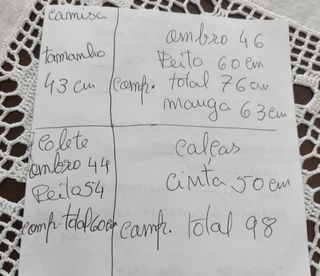 camisa
tamanho
43 cm
ombro 46
Peito 60 cm
comp. total 76 cm
manga 63 cm
Colete
ombro 44
Peito 54
comp total 60 cm
calças
cinta 50 cm
comp. total 98